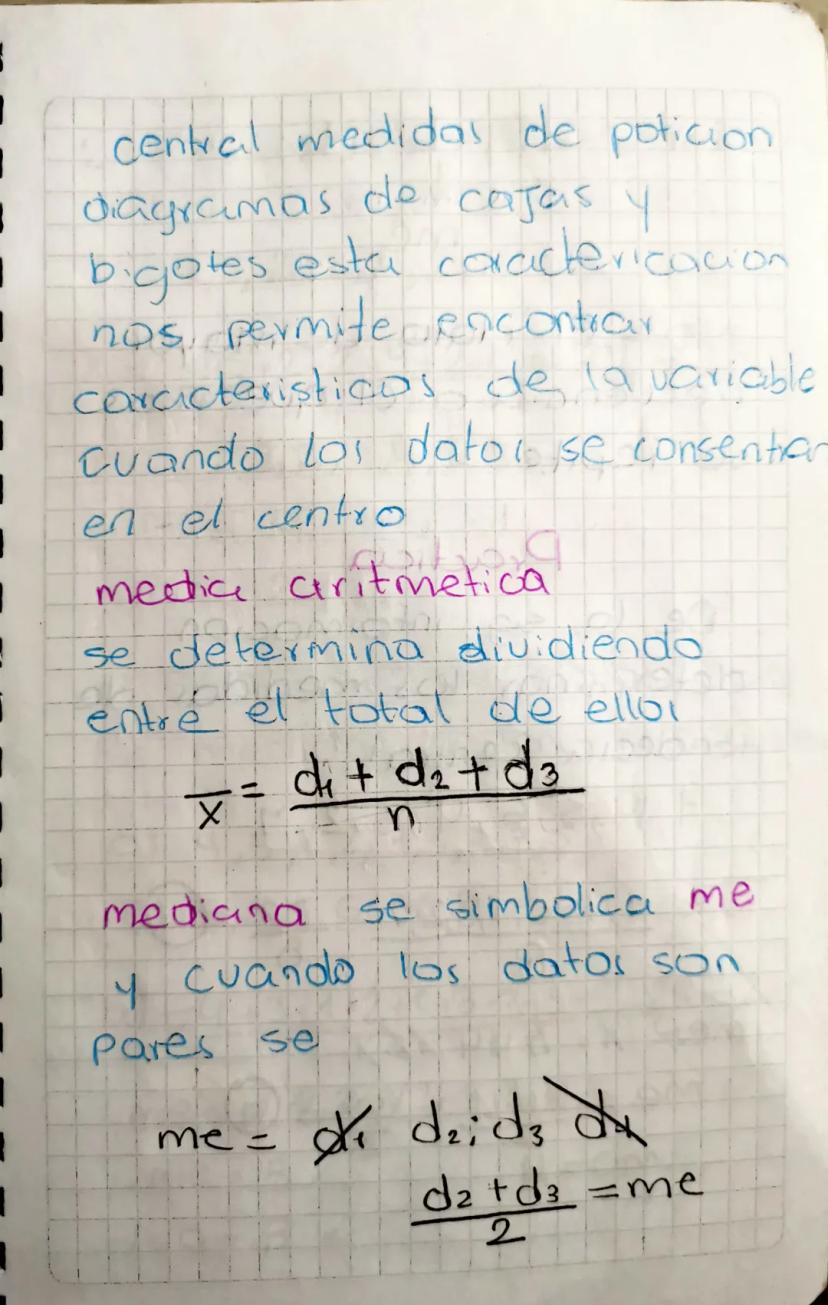 central medidas de poticion
diagramas de cajas y
bigotes esta caractericacion
nos permite encontrar
caracteristicas de la variable
cuando los datos se consentran
en el centro
media aritmetica
se determina dividiendo
entre el total de ellos
x̅ = d1 + d2 + d3
n
mediana se simbolica me
y cuando los datos son
pares se
me = d1 d2; d3 d4
d2 + d3 = me
2